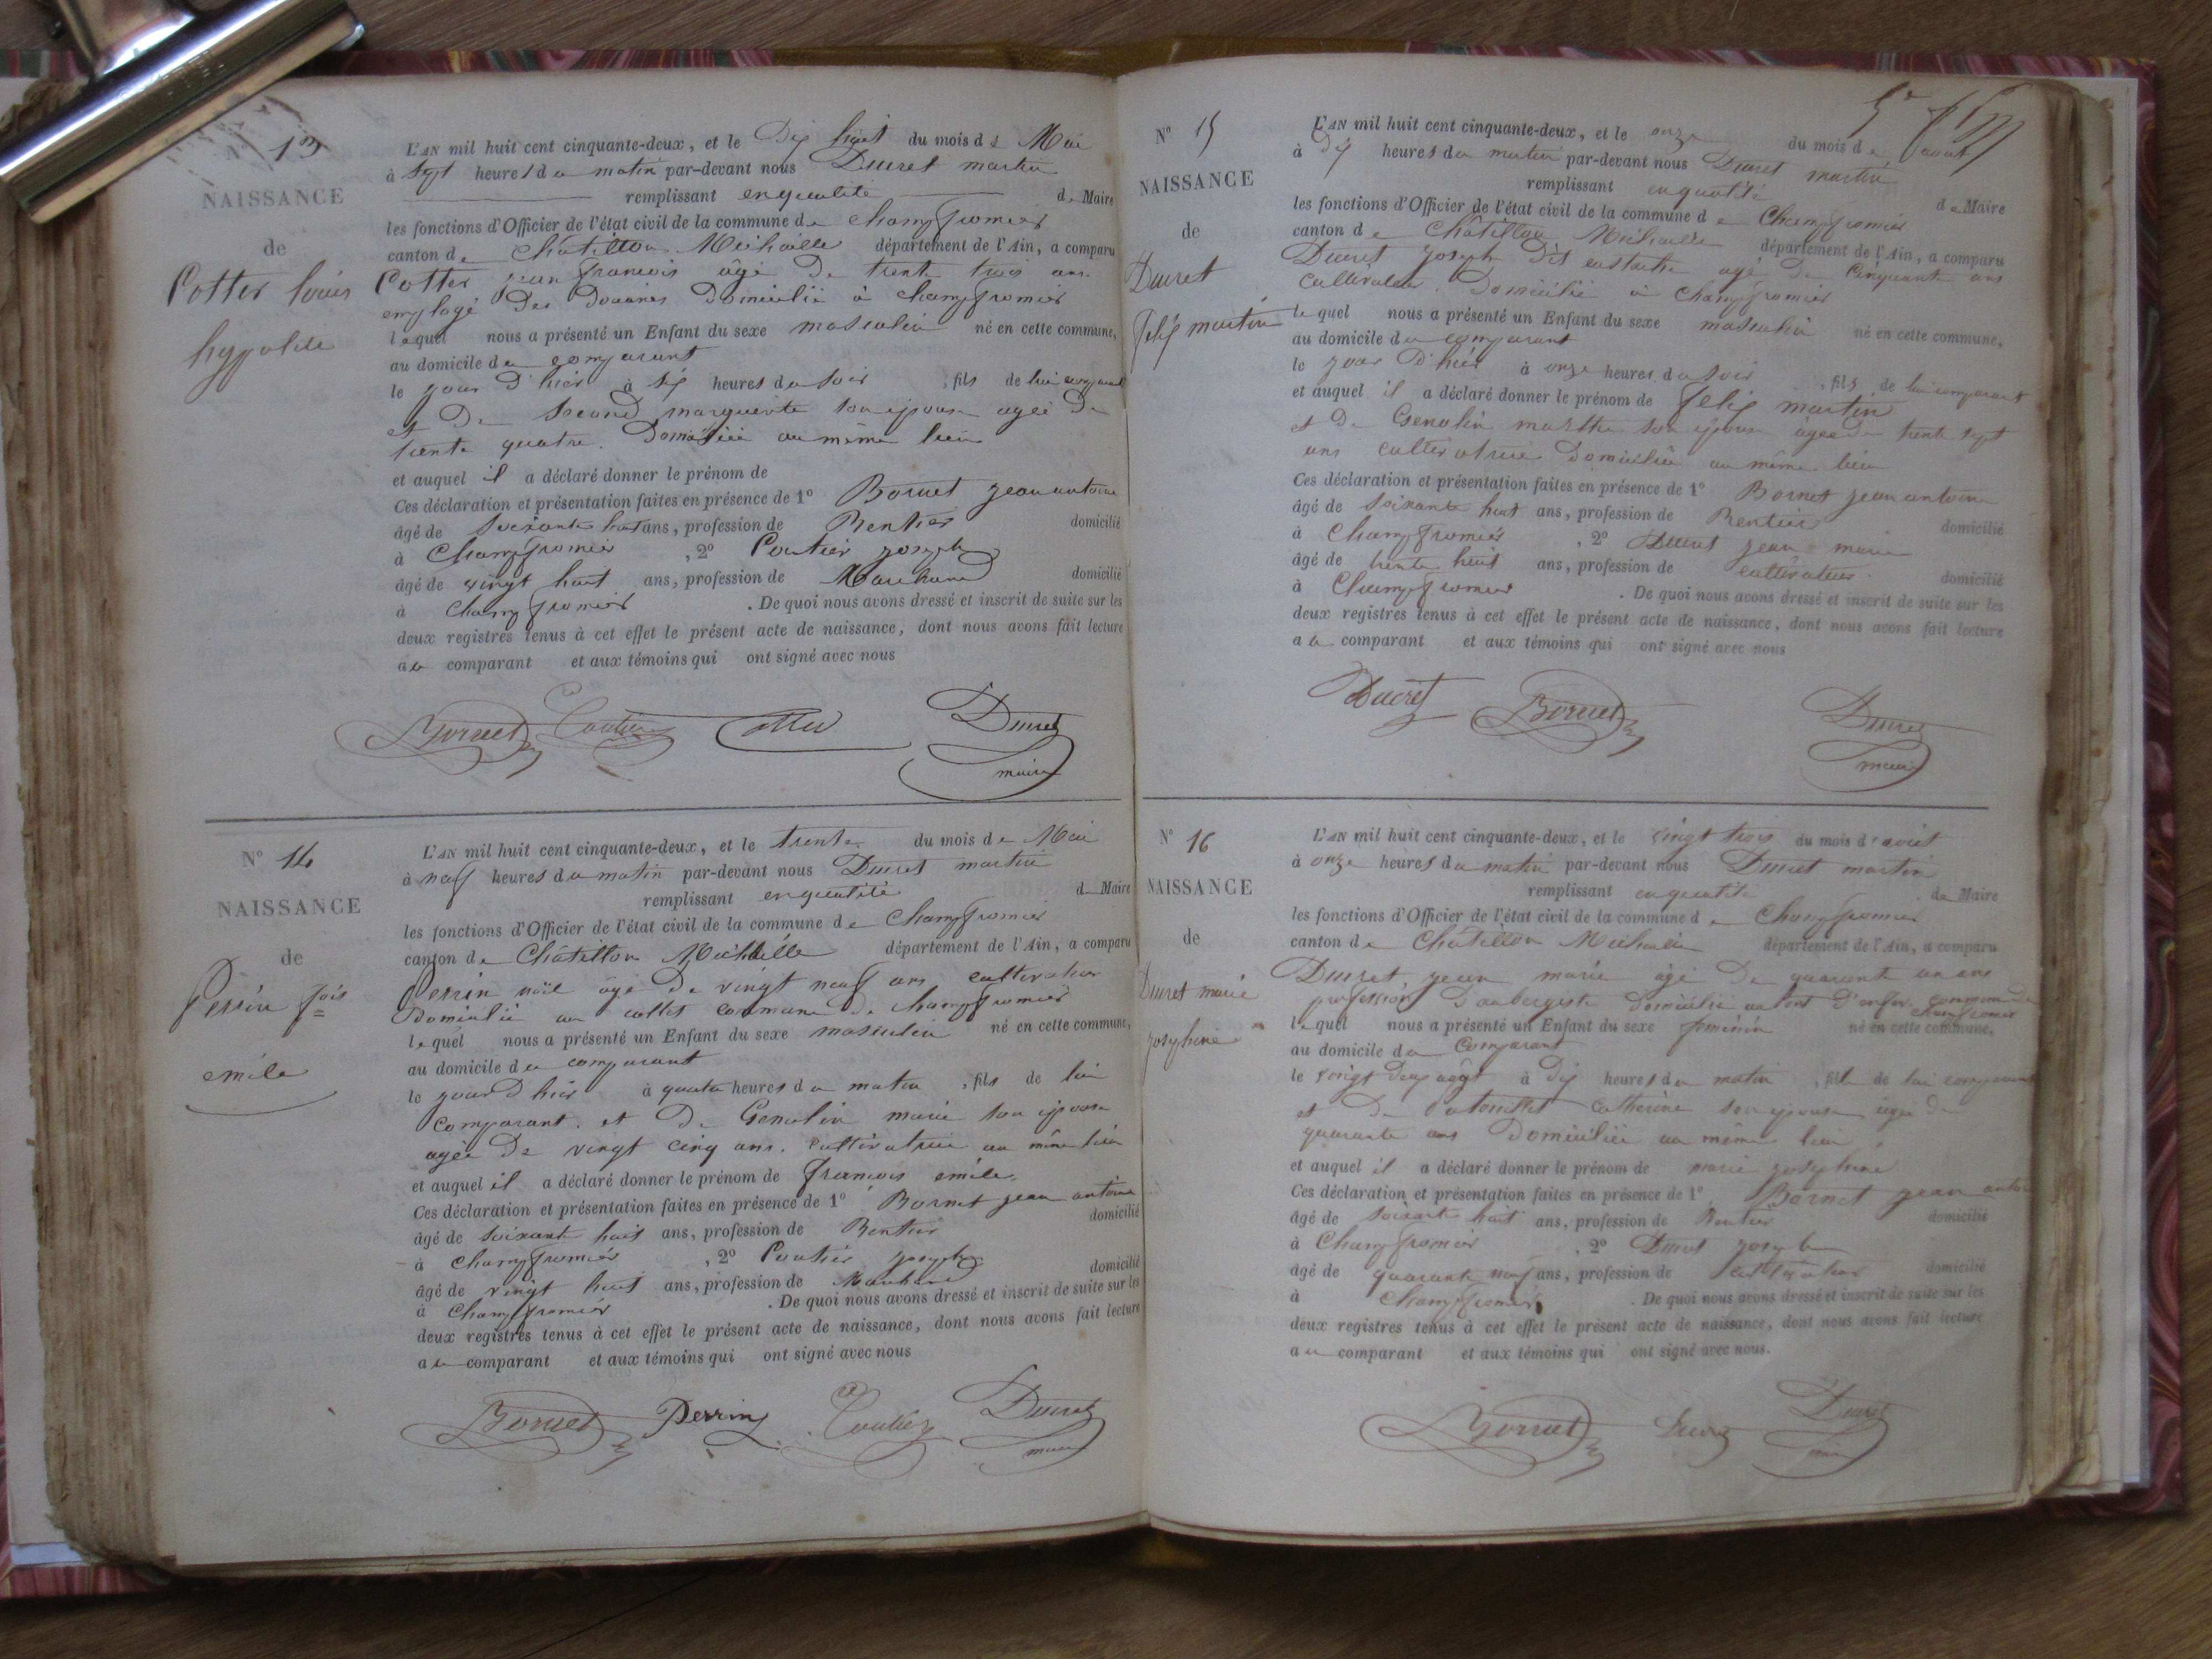 13
NAISSANCE
de
Cotter louis
hypolite
L'AN mil huit cent cinquante-deux, et le Dix huit du mois de Mai
à Sept heures du matin par-devant nous Ducret martin
remplissant en qualité de Maire
les fonctions d'Officier de l'état civil de la commune de Champfromier
canton de Châtillon Michaille département de l'Ain, a comparu
Cotter jean francois âgé de trente trois ans
employé Des Douanes Domicilié à champfromier
lequel nous a présenté un Enfant du sexe masculin né en cette commune,
au domicile du comparant
le jour D'hier à six heures du soir , fils de lui comparant
et De Secand marguerite son épouse agée De
trente quatre. Domiciliée au même lieu
et auquel il a déclaré donner le prénom de
Ces déclaration et présentation faites en présence de 1° Bornet jean antoine
âgé de soixante huit ans, profession de Rentier domicilié
à Champfromier , 2° Coutier joseph
âgé de vingt huit ans, profession de Marchand domicilié
à champfromier . De quoi nous avons dressé et inscrit de suite sur les
deux registres tenus à cet effet le présent acte de naissance, dont nous avons fait lecture
au comparant et aux témoins qui ont signé avec nous
Bornet Coutier Cotter Ducret
maire
N° 14
NAISSANCE
de
Perrin fois
emile
L'AN mil huit cent cinquante-deux, et le trente du mois de Mai
à neuf heures du matin par-devant nous Ducret martin
remplissant en qualité de Maire
les fonctions d'Officier de l'état civil de la commune de Champfromier
canton de Châtillon Michaille département de l'Ain, a comparu
Perrin noël âgé De vingt neuf ans cultivateur
Domicilié au collet commune De champfromier
lequel nous a présenté un Enfant du sexe masculin né en cette commune,
au domicile du comparant
le jour D'hier à quatre heures du matin , fils de lui
comparant. et De Genolin marie son épouse
agée De vingt cinq ans. cultivatrice au même lieu
et auquel il a déclaré donner le prénom de francois emile.
Ces déclaration et présentation faites en présence de 1° Bornet jean antoine
âgé de soixante huit ans, profession de Rentier domicilié
à champfromier , 2° Coutier joseph
âgé de vingt huit ans, profession de Marchand domicilié
à Champfromier . De quoi nous avons dressé et inscrit de suite sur les
deux registres tenus à cet effet le présent acte de naissance, dont nous avons fait lecture
au comparant et aux témoins qui ont signé avec nous
Bornet Perrin Coutier Ducret
maire
N° 15
NAISSANCE
de
Ducret
felix martin
L'AN mil huit cent cinquante-deux, et le onze du mois de aout
à Dix heures du matin par-devant nous Ducret martin
remplissant en qualité de Maire
les fonctions d'Officier de l'état civil de la commune de Champfromier
canton de Châtillon Michaille département de l'Ain, a comparu
Ducret joseph Dit eustache agé De Cinquante ans
cultivateur. Domicilié à Champfromier
lequel nous a présenté un Enfant du sexe masculin né en cette commune,
au domicile du comparant
le jour D'hier à onze heures du soir , fils de lui comparant
et auquel il a déclaré donner le prénom de felix martin
et De Genolin marthe son épouse âgée De trente sept
ans cultivatrice Domiciliée au même lieu
Ces déclaration et présentation faites en présence de 1° Bornet jean antoine
âgé de soixante huit ans, profession de Rentier domicilié
à Champfromier , 2° Ducret jean marie
âgé de trente huit ans, profession de cultivateur. domicilié
à Champfromier . De quoi nous avons dressé et inscrit de suite sur les
deux registres tenus à cet effet le présent acte de naissance, dont nous avons fait lecture
au comparant et aux témoins qui ont signé avec nous
Ducret Bornet Ducret
maire
N° 16
NAISSANCE
de
Ducret marie
josephine
L'AN mil huit cent cinquante-deux, et le vingt trois du mois d'août
à onze heures du matin par-devant nous Ducret martin
remplissant en qualité de Maire
les fonctions d'Officier de l'état civil de la commune de Champfromier
canton de Châtillon Michaille département de l'Ain, a comparu
Ducret jean marie âgé De quarante un ans
profession D'aubergiste Domicilié au Pont D'enfer commune de
champfromier
lequel nous a présenté un Enfant du sexe féminin né en cette commune,
au domicile du Comparant
le vingt Deux août à Dix heures du matin , fille de lui comparant
et De catherine son épouse agée De
quarante ans Domiciliée au même lieu
et auquel il a déclaré donner le prénom de marie josephine
Ces déclaration et présentation faites en présence de 1° Bornet jean antoine
âgé de soixante huit ans, profession de Rentier domicilié
à Champfromier , 2° Ducret joseph
âgé de quarante neuf ans, profession de cultivateur domicilié
à Champfromier . De quoi nous avons dressé et inscrit de suite sur les
deux registres tenus à cet effet le présent acte de naissance, dont nous avons fait lecture
au comparant et aux témoins qui ont signé avec nous.
Bornet Ducret Ducret
maire